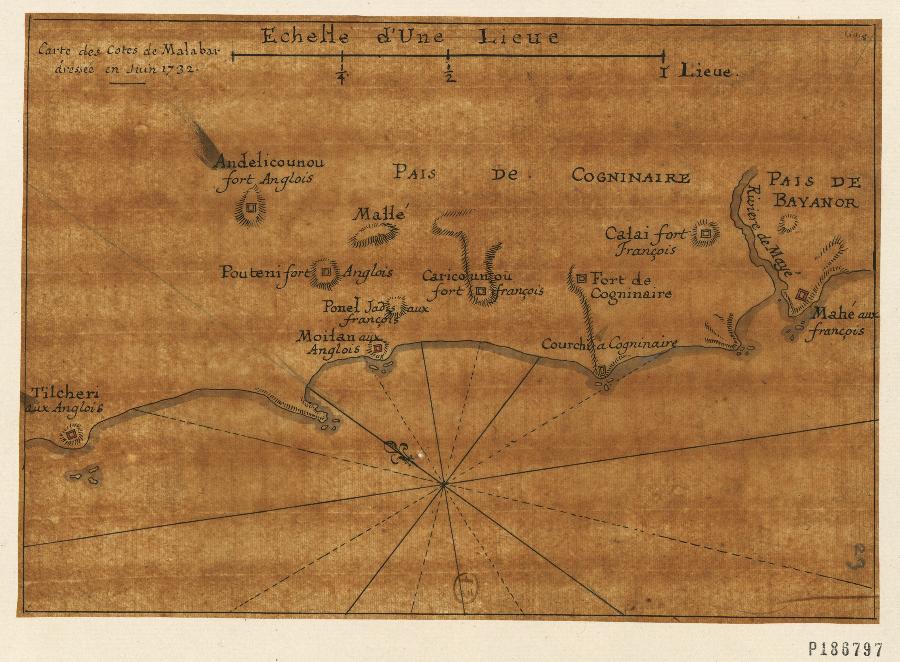 Echelle d'Une Lieue
Carte des Cotes de Malabar
dressée en Juin 1732.
1/4
1/2
1 Lieue.
Andelicounou
fort Anglois
PAIS DE COGNINAIRE
PAIS DE
BAYANOR
Mallé
Riviere de Mayé
Calai fort
François
Pouteni fort Anglois
Caricounou
fort françois
Fort de
Cogninaire
Ponel Jadis aux
françois
Mahé aux
françois
Moilan aux
Anglois
Courchi à Cogninaire
Tilcheri
aux Anglois
P186797